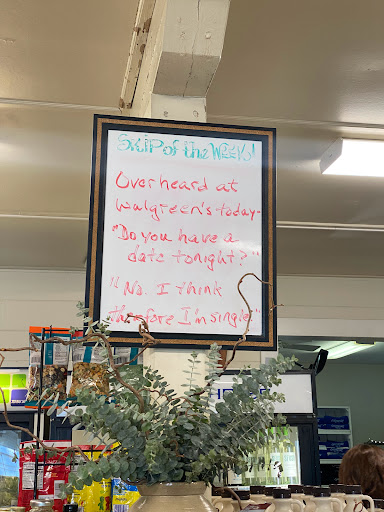 SKIP of the WEEK!
Overheard at
Walgreen's today-
"Do you have a
date tonight?"
"No. I think
therefore I'm single"